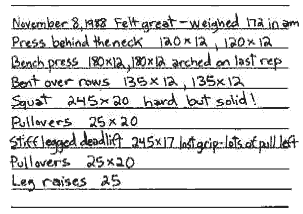 November 8, 1988 Felt great - weighed 172 in am
Press behind the neck 120x12, 120x12
Bench press 180x12, 180x12 arched on last rep
Bent over rows 135x12, 135x12
Squat 245x20 hard but solid!
Pullovers 25x20
Stiff legged deadlift 245x17 lost grip - lots of pull left
Pullovers 25x20
Leg raises 25